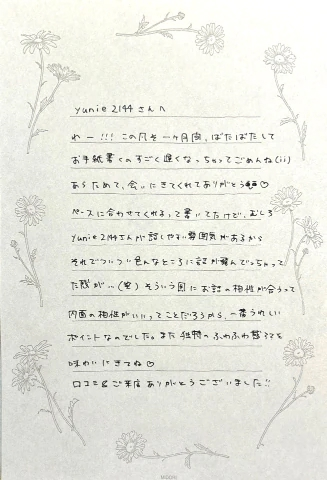 yunie2144さんへ
わー!!! この凡そ一ヶ月間、ばたばたして
お手紙書くのすごく遅くなっちゃってごめんね(ii)
あらためて、会いにきてくれてありがとう♡
ペースに合わせてくれるって書いてたけど、むしろ
yunie2144さんが話しやすい雰囲気があるから
それでついつい色んなところに話が飛んでっちゃって
た感が…(笑) そういう風にお話の相性が合うって
内面の相性がいいってことだろうから、一番うれしい
ポイントなのでした。また独特のふわふわ感を
味わいにきてね♡
口コミ&ご来店ありがとうございました!!